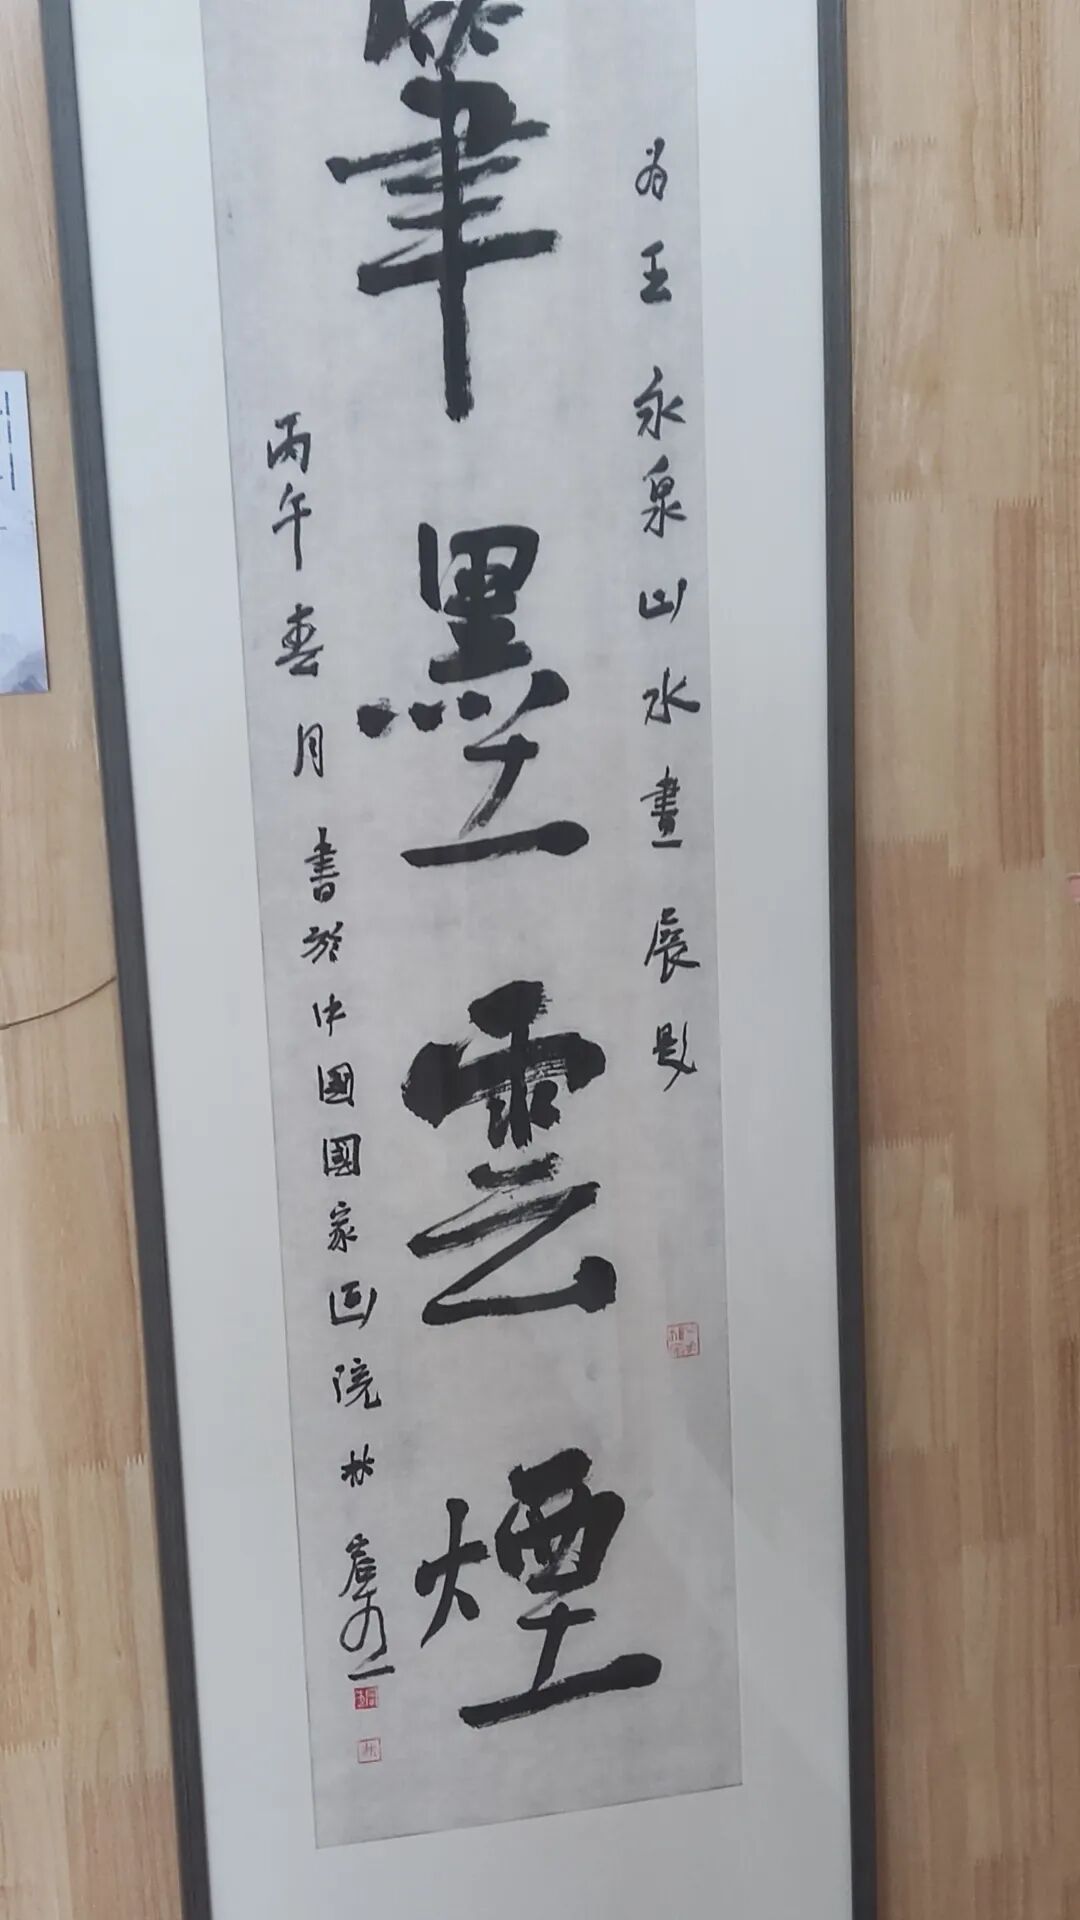 为王永泉山水畫展題
筆墨雲煙
丙午春月書於中國國家画院林